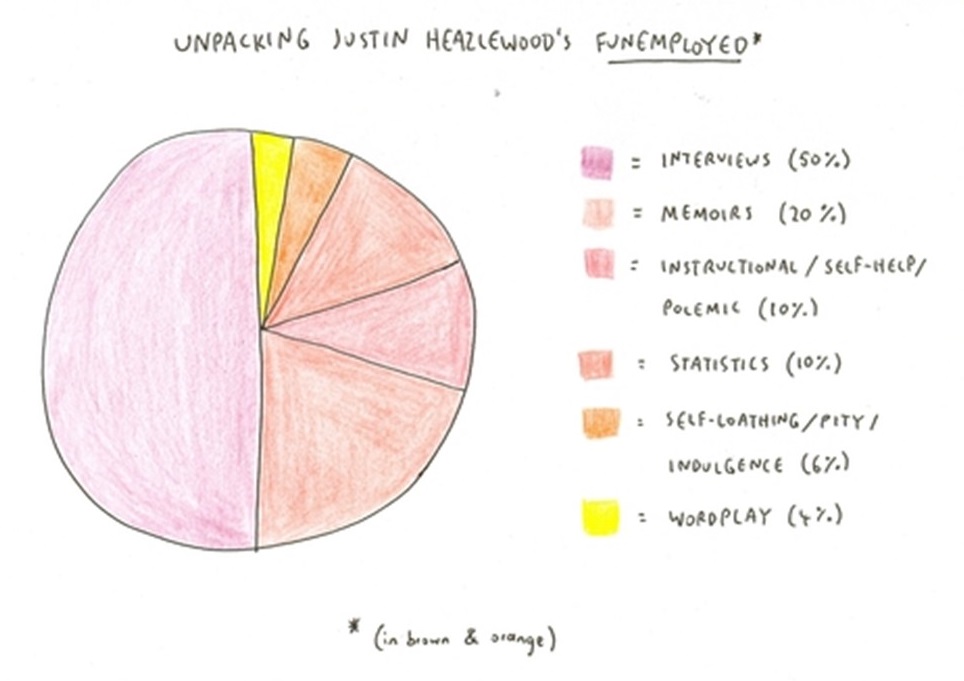 UNPACKING JUSTIN HEAZLEWOOD'S FUNEMPLOYED*
= INTERVIEWS (50%)
= MEMOIRS (20%)
= INSTRUCTIONAL / SELF-HELP/
POLEMIC (10%)
= STATISTICS (10%)
= SELF-LOATHING/PITY/
INDULGENCE (6%)
= WORDPLAY (4%)
* (in brown & orange)